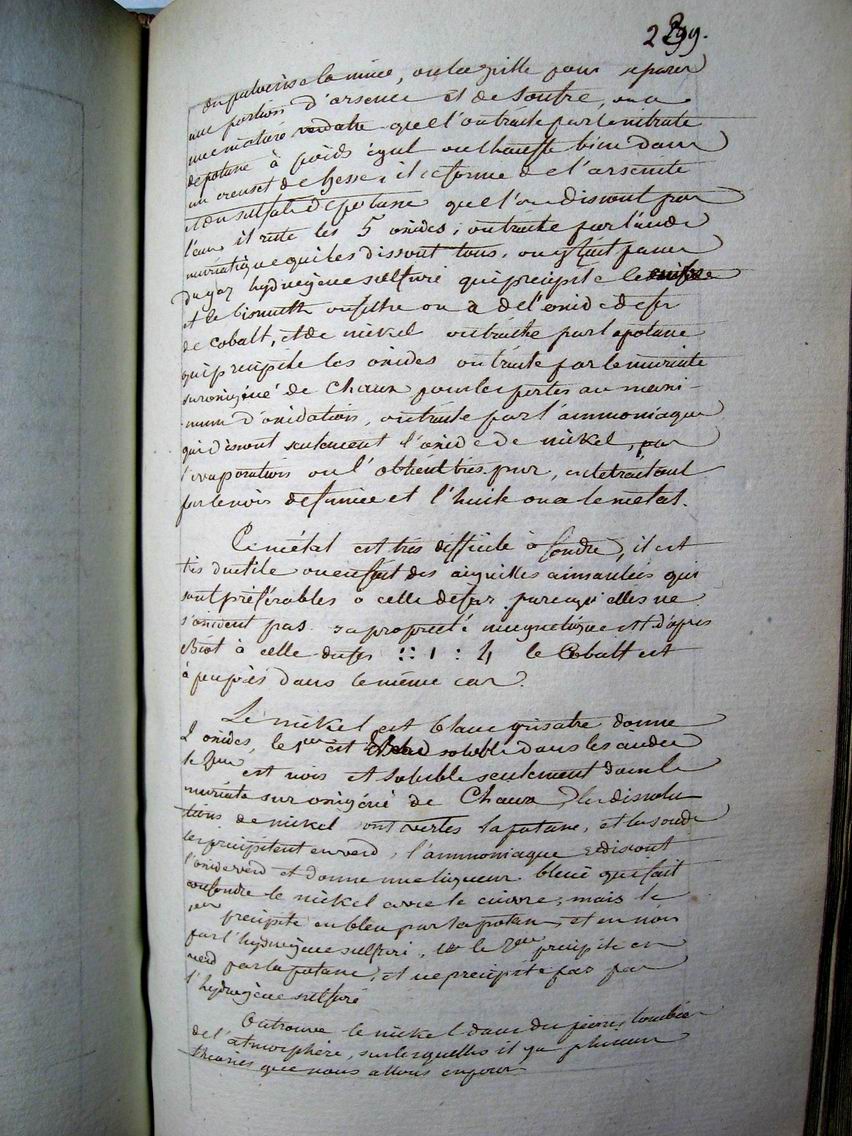 299.
on pulverise la mine, on la grille pour séparer
une portion d'arsenic et de soufre, on a
une matiere verdatre que l'on traite par le nitrate
de potasse à poids égal on chauffe bien dans
un creuset de hesse, il se forme de l'arseniate
et du sulfate de potasse que l'on dissout par
l'eau il reste les 5 oxides; on traite par l'acide
muriatique qui les dissout tous, on y fait passer
du gaz hydrogène sulfuré qui precipite le cuivre
et le bismuth on filtre on a de l'oxide de fer
de cobalt, et de nickel on traite par la potasse
qui precipite les oxides on traite par le muriate
suroxigéné de Chaux pour les porter au maxi-
mum d'oxidation, on traite par l'ammoniaque
qui dissout seulement l'oxide de nickel, par
l'evaporation on l'obtient très pur, en le traitant
par le noir de fumée et l'huile on a le métal.
Ce métal est très difficile à fondre, il est
très ductile on en fait des aiguilles aimantées qui
sont préférables a celle de fer parcequ'elles ne
s'oxident pas sa propriété magnetique est d'apres
Biot à celle du fer :: 1 : 4 le Cobalt est
à peu près dans le même cas.
Le nickel est blanc grisatre donne
2 oxides, le 1er est verd soluble dans les acides
le 2me est noir et soluble seulement dans le
muriate suroxigéné de Chaux les dissolu
tions de nickel sont vertes la potasse, et la soude
les precipitent en verd, l'ammoniaque redissout
l'oxide verd et donne une liqueur bleue qui fait
confondre le nickel avec le cuivre, mais le
1er precipite en bleu par la potasse et en noir
par l'hydrogène sulfuré, le 2me precipite en
verd par la potasse, et ne precipite pas par
l'hydrogène sulfuré
On trouve le nickel dans des pierres tombées
de l'atmosphère, sur lesquelles il y a plusieurs
theories que nous allons exposer